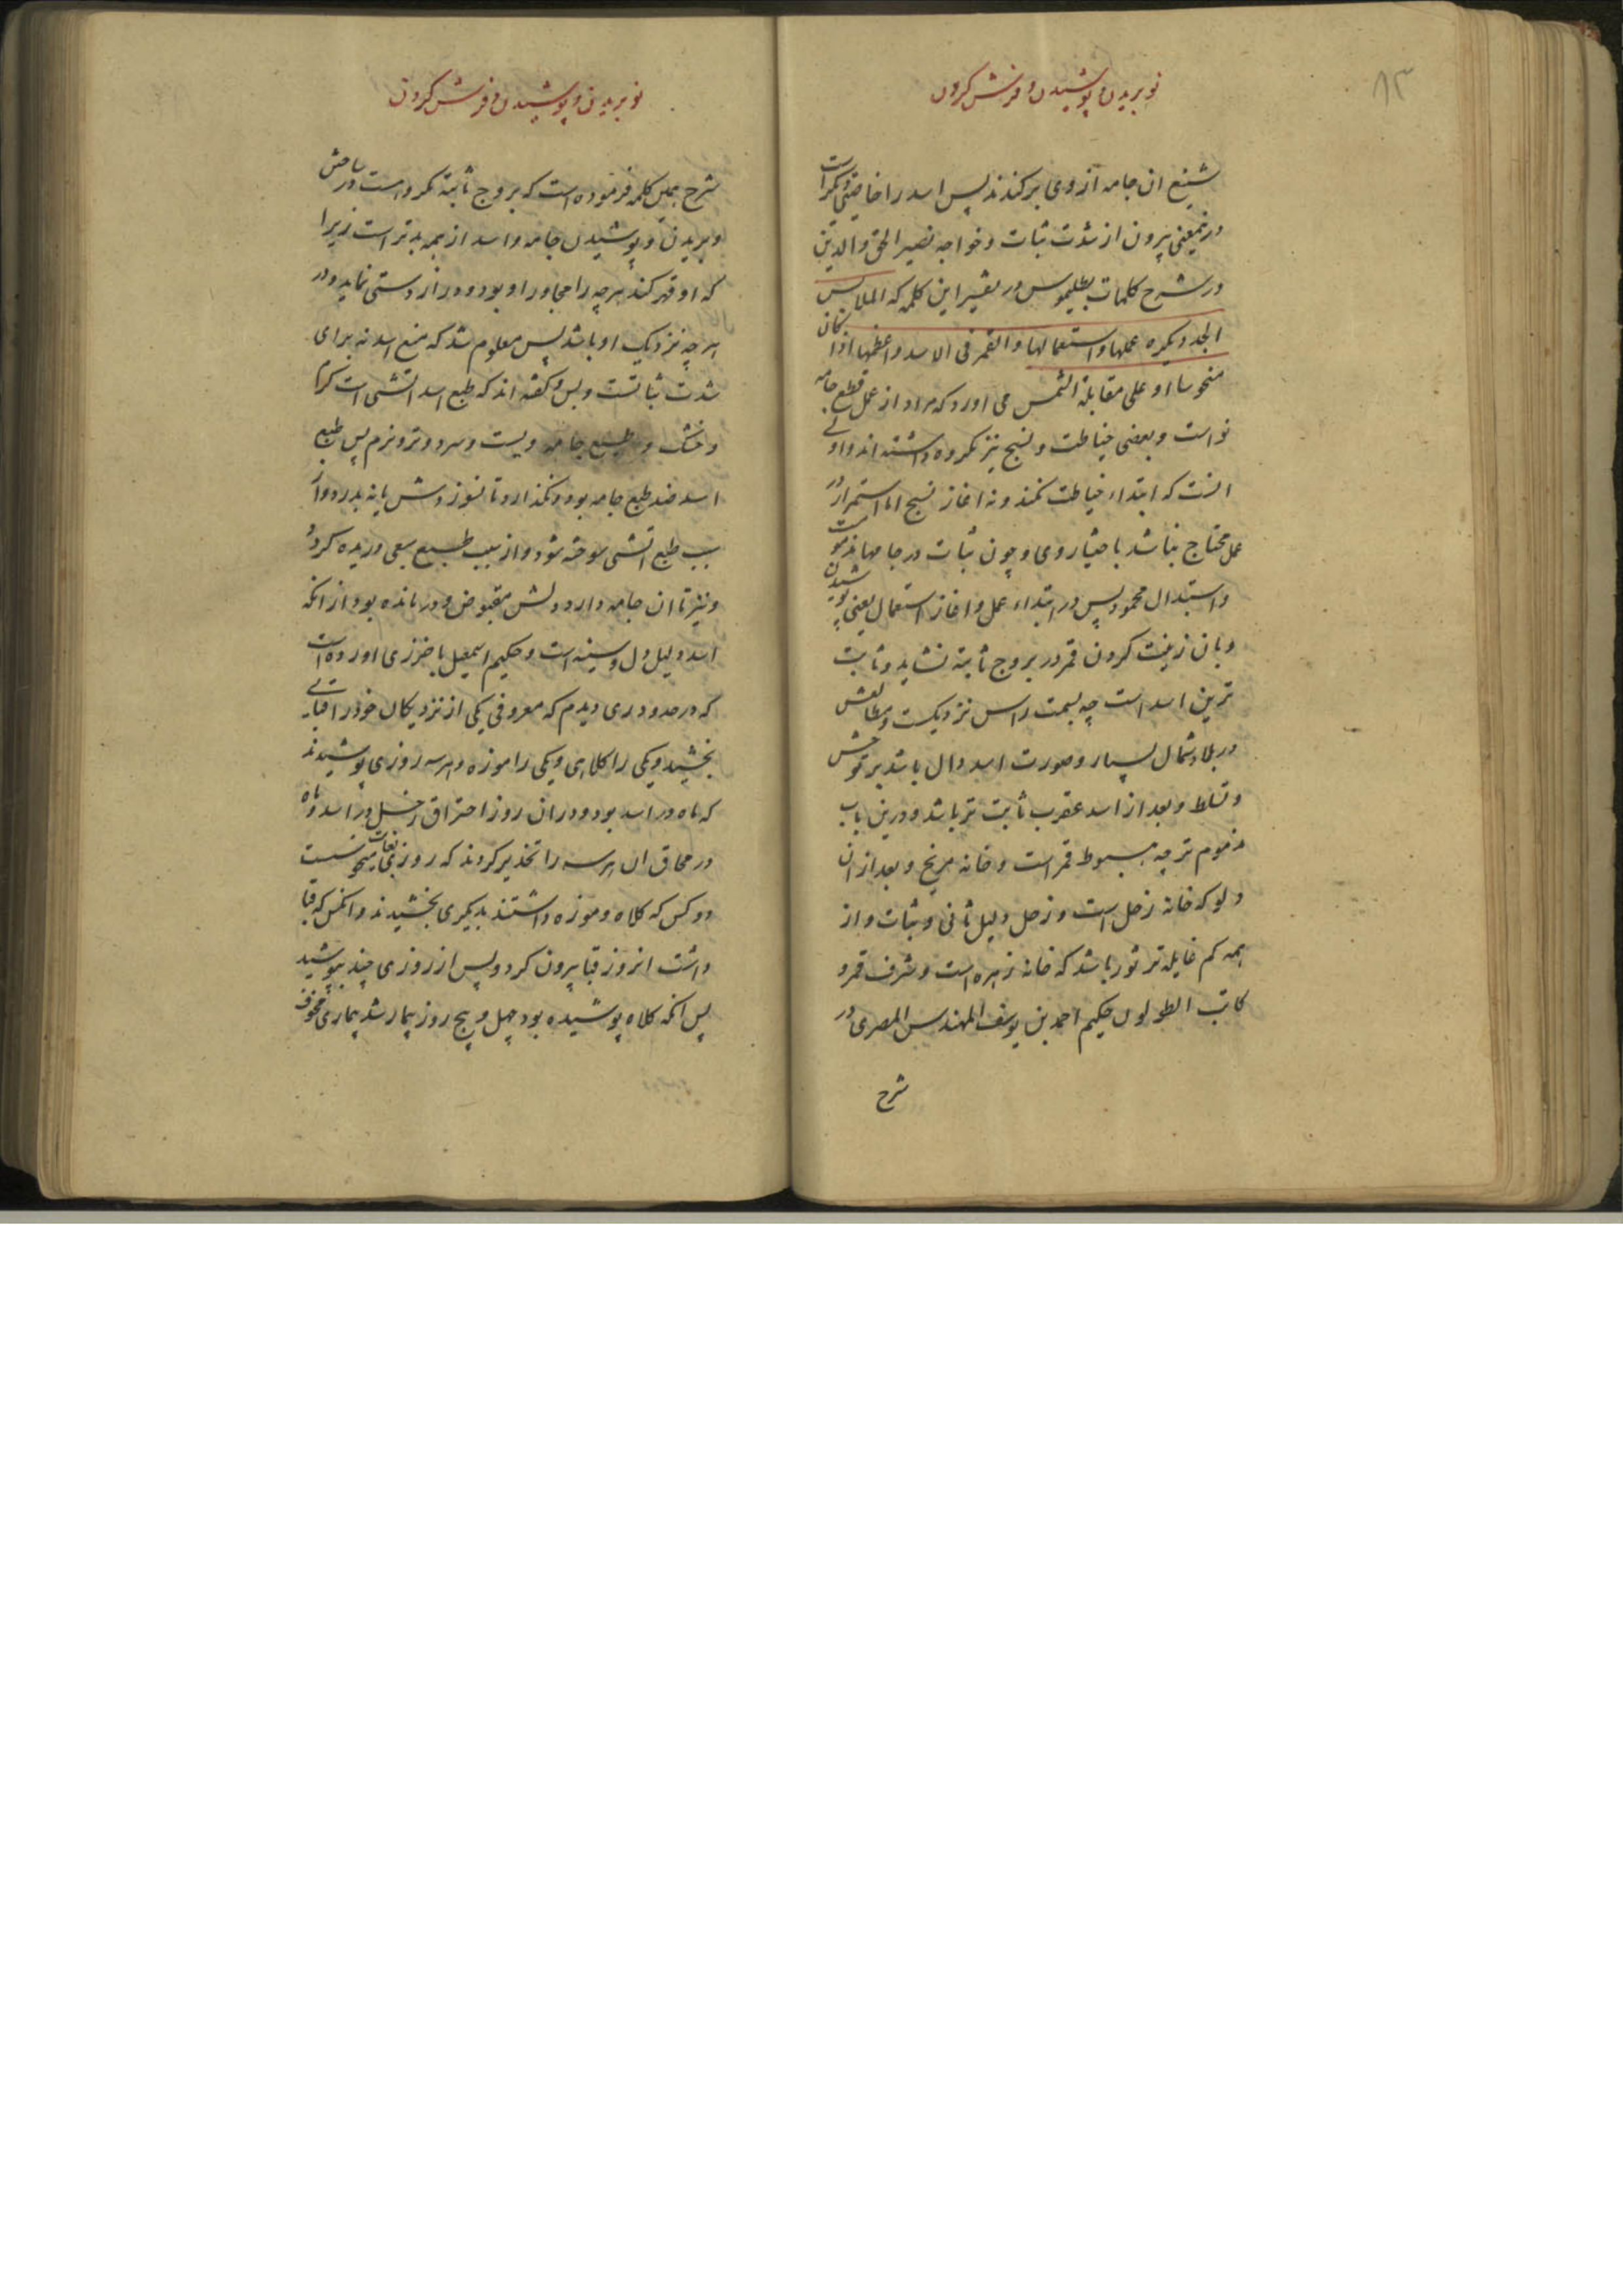 ۸۳
نو بریدن و پوشیدن و فرش کردن
شنیع ان جامه از وی برکندند پس اسد را خاصیتی دیگرست
درینمعنی بیرون از شدت ثبات و خواجه نصیر الحق والدین
در شرح کلمات بطلیموس در تفسیر این کلمه که الملابس
الجدد یکره عملها و استعمالها والقمر فی الاسد و اعظمها اذا کان
منحوسا او علی مقابلة الشمس می اورد که مراد از عمل قطع جامه
نو است و بعضی خیاطت و نسج نیز مکروه داشته اند و اولی
انست که ابتداء خیاطت نکنند و نه اغاز نسج اما استمرار در
عمل محتاج نباشد باختیاری و چون ثبات در جامها مذموست
و استبدال محمود پس در ابتداء عمل و اغاز استعمال یعنی پوشیدن
و بان زینت کردن قمر در بروج ثابته نشاید و ثابت
ترین اسد است چه بسمت راس نزدیکست و مطالعش
در بلاد شمال بسیار و صورت اسد دال باشد بر توحش
و تسلط و بعد از اسد عقرب ثابت تر باشد و درین باب
مذموم تر چه هبوط قمر است و خانه مریخ و بعد از ان
دلو که خانه زحل است و زحل دلیل تانی و ثبات و از
همه کم غایله تر ثور باشد که خانه زهره است و شرف قمر و
کاتب الطولون حکیم احمد بن یوسف المهندس المصری در
شرح
نو بریدن و پوشیدن و فرش کردن
شرح همین کلمه فرموده است که بروج ثابته مکروه است در ساختن
و بریدن و پوشیدن جامه و اسد از همه بدتر است زیرا
که او قهر کند هرچه را مجاور او بود و دراز دستی نماید در
هرچه نزدیک او باشد پس معلوم شد که منع اسد نه برای
شدت ثباتست و بس و گفته اند که طبع اسد اتشی است گرم
و خشک و طبع جامه سرد و تر و نرم پس طبع
اسد ضد طبع جامه بود و نگذارد تا نسوزدش یا ندرد و از
سبب طبع اتشی سوخته شود و از سبب طبع سبعی دریده گردد
و نیز تا ان جامه دارد دلش مقبوض و درمانده بود از انکه
اسد دلیل دل و سینه است و حکیم اسمعیل باخرزی اورده است
که در حدود ری دیدم که معروفی یکی از نزدیکان خود را قبایی
بخشید و یکی را کلاهی و یکی را موزه و هر سه روزی پوشیدند
که ماه در اسد بود و دران روز احتراق زحل در اسد و ماه
در محاق ان هرسه را تحذیر کردند که روزی بغایت منحوسست
دو کس که کلاه و موزه داشتند بدیگری بخشیدند و انکس که قبا
داشت انروز قبا بیرون کرد و پس از روزی چند بپوشید
پس انکه کلاه پوشیده بود چهل و پنج روز بیمار شد بیماری مخوف